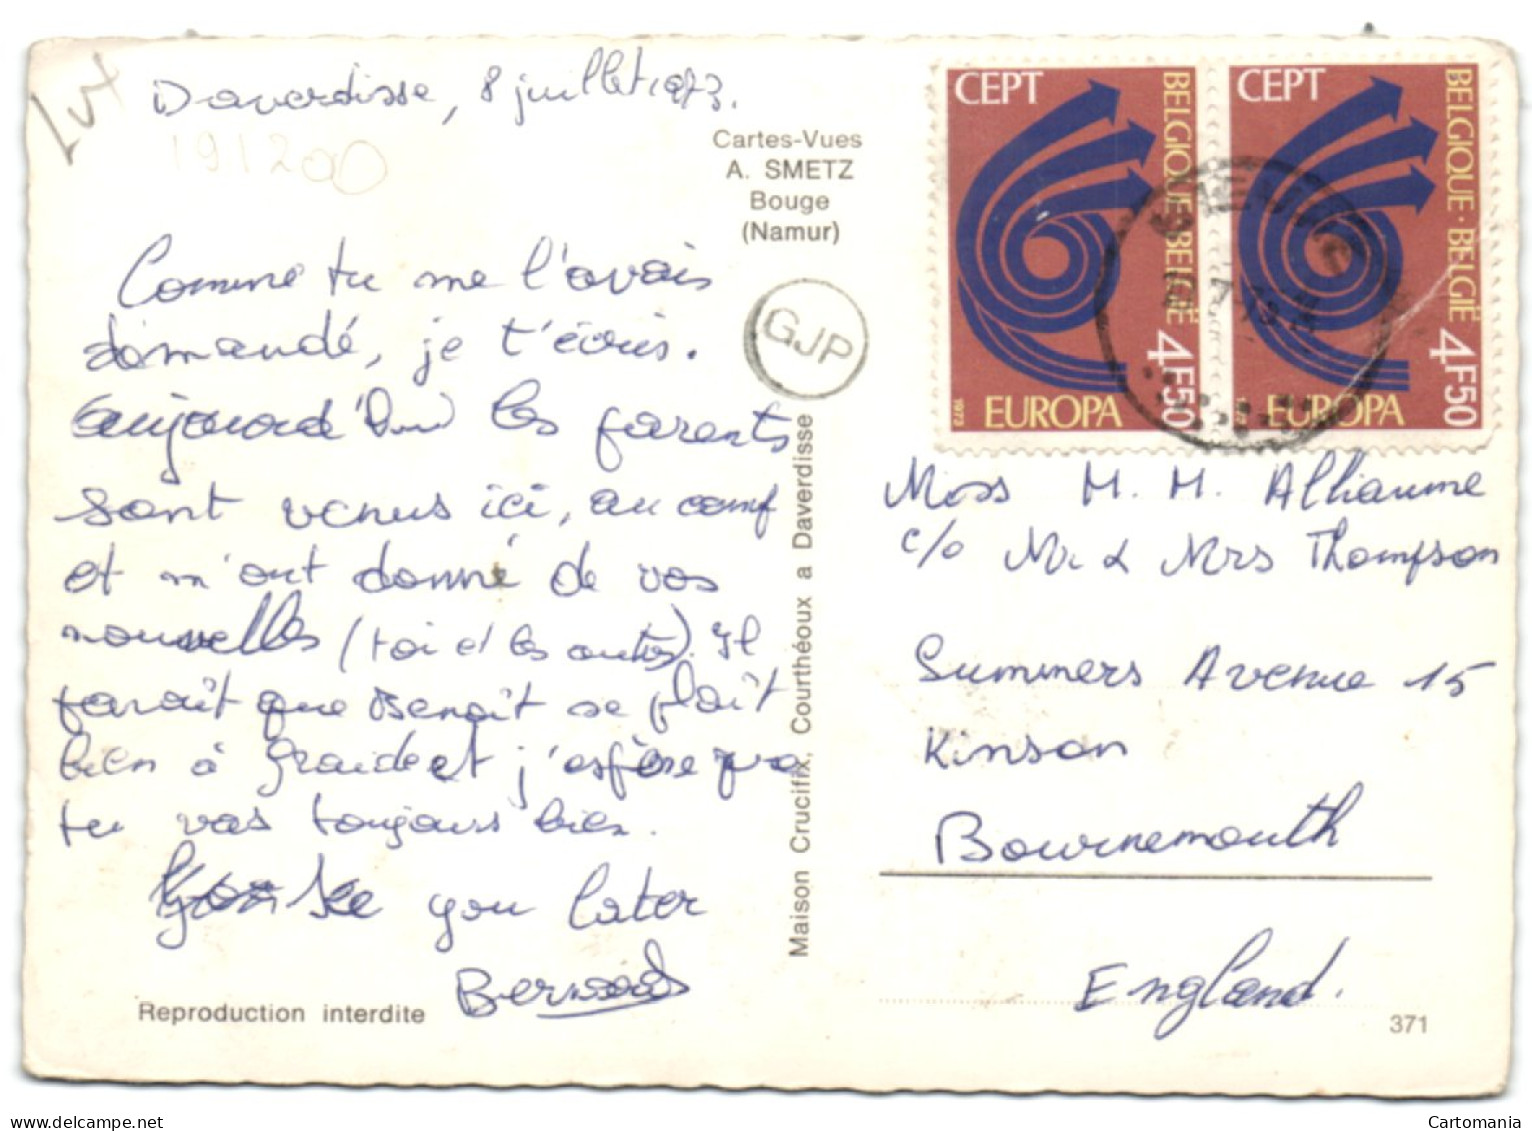 Lux
Daverdisse, 8 juillet 1973.
191200
Cartes-Vues
A. SMETZ
Bouge
(Namur)
GJP
Comme tu me l'avais
demandé, je t'écris.
Aujourd'hui les parents
sont venus ici, au camp
et m'ont donné de vos
nouvelles (toi et les autres). Il
parait que Benoît se plaît
bien à Graide et j'espère que
tu vas toujours bien.
See you later
Bernard
Reproduction interdite
Maison Crucifix, Courthéoux a Daverdisse
CEPT
BELGIQUE·BELGIË
4F50
EUROPA
1973
CEPT
BELGIQUE·BELGIË
4F50
EUROPA
Miss M. M. Alliaume
c/o Mr & Mrs Thompson
Summers Avenue 15
Kinson
Bournemouth
England.
371
Cartomania